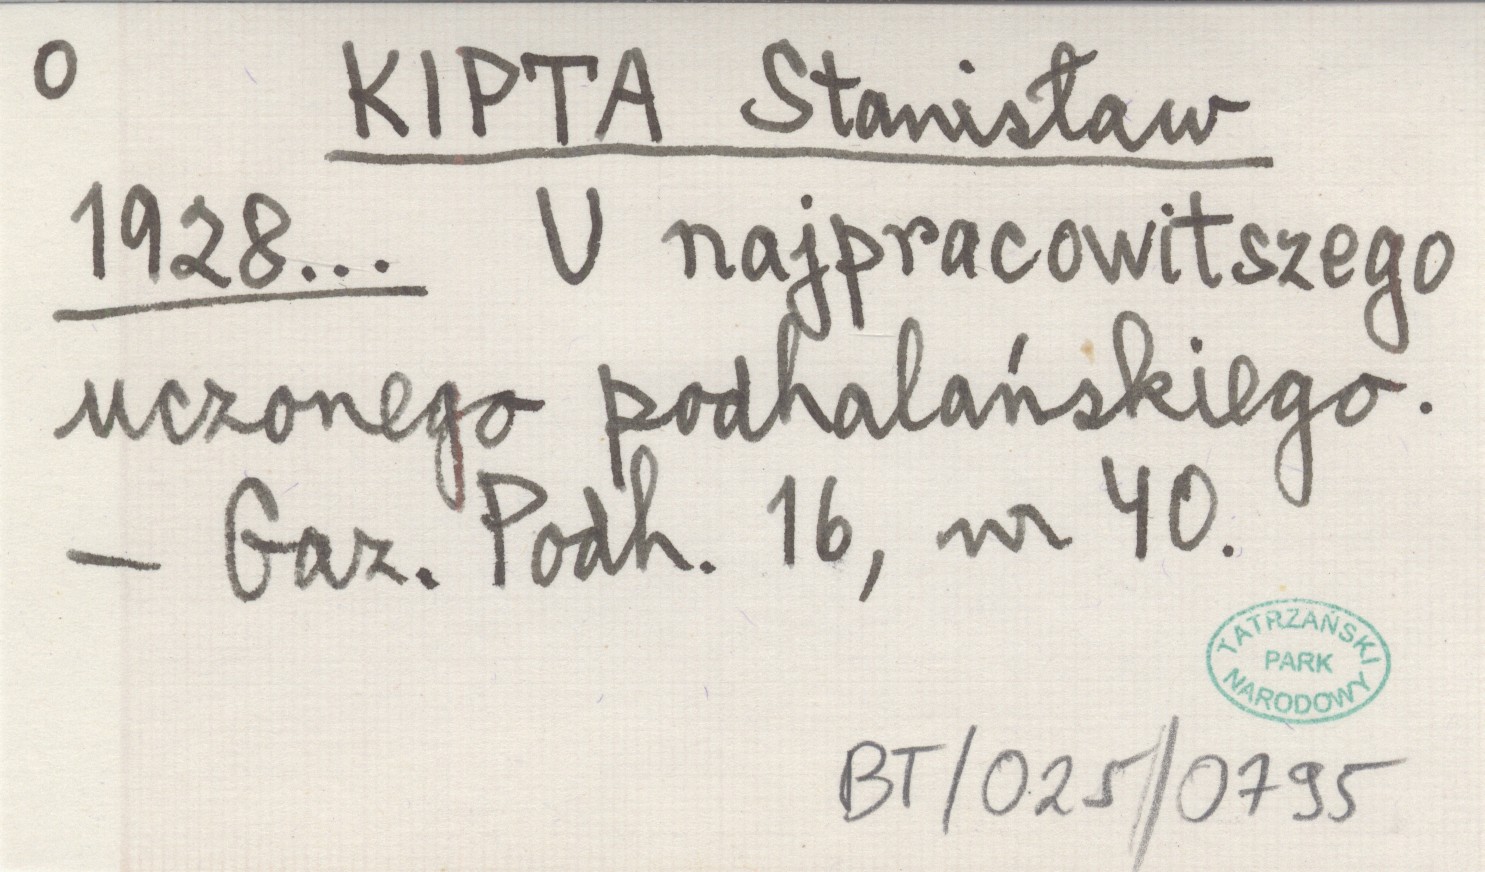 O KIPTA Stanisław
1928... U najpracowitszego
uczonego podhalańskiego.
— Gaz. Podh. 16, nr 40.
TATRZAŃSKI
PARK
NARODOWY
BT/025/0795